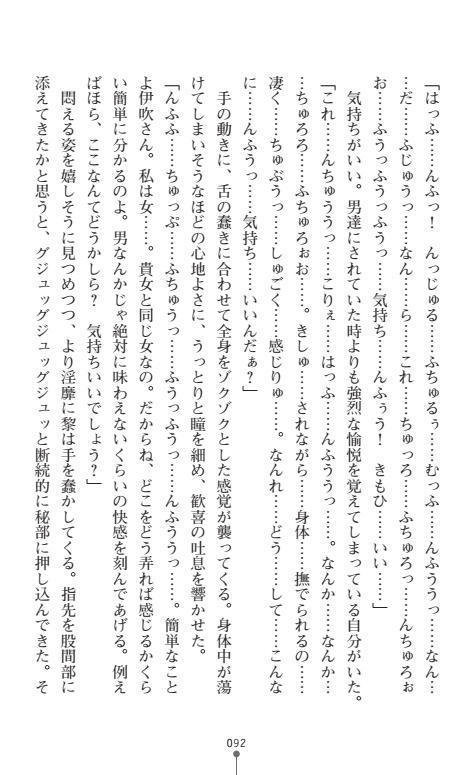 「はっふ……んふっ！　んっじゅる……ふちゅるぅ……むっふ……んふううっ……なん…
…だ……ふじゅうっ……なん……ら……これ……ちゅっろ……ふちゅろっ……んちゅろぉ
お……ふうっふうっふうっ……気持ち……んふぅう！　きもひ……いい……」
　気持ちがいい。男達にされていた時よりも強烈な愉悦を覚えてしまっている自分がいた。
「これ……んちゅううっ……こりぇ……はっふ……んふううっ……。なんか……なんか…
…ちゅろろ……ふちゅろぉお……。きしゅ……されながら……身体……撫でられるの……
凄く……ちゅぶうっ……しゅごく……感じりゅ……。なんれ……どう……して……こんな
に……んふうっ……気持ち……いいんだぁ？」
　手の動きに、舌の蠢きに合わせて全身をゾクゾクとした感覚が襲ってくる。身体中が蕩
けてしまいそうなほどの心地よさに、うっとりと瞳を細め、歓喜の吐息を響かせた。
「んふふ……ちゅっぷ……ふちゅうっ……ふうっふうっ……んふううっ……。簡単なこと
よ伊吹さん。私は女……。貴女と同じ女なの。だからね、どこをどう弄れば感じるかくら
い簡単に分かるのよ。男なんかじゃ絶対に味わえないくらいの快感を刻んであげる。例え
ばほら、ここなんてどうかしら？　気持ちいいでしょう？」
　悶える姿を嬉しそうに見つめつつ、より淫靡に黎は手を蠢かしてくる。指先を股間部に
添えてきたかと思うと、グジュッグジュッと断続的に秘部に押し込んできた。そ
092